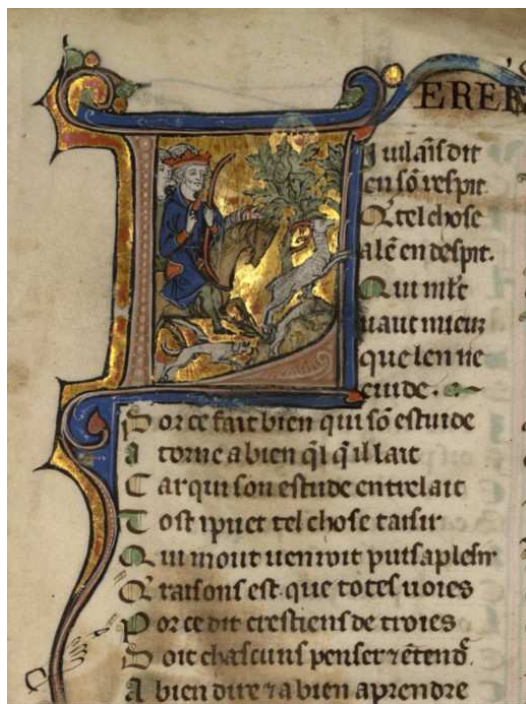 ERE
I uilaīs dit
en sō respit
Q' tel chose
a lē en despit.
Qui ml't
uaut mieuz
que len ne
cuide.
Por ce fait bien qui sō estuide
A torne a bien q̄l q̄ il lait
Car qui son estude entrelait
Tost i puet tel chose taisir
Qui mout uenroit puis a plesir
Q' raisons est que totes uoies
Por ce dit crestiens de troies
Doit chascuns penser ⁊ ētend'
A bien dire ⁊ a bien aprendre